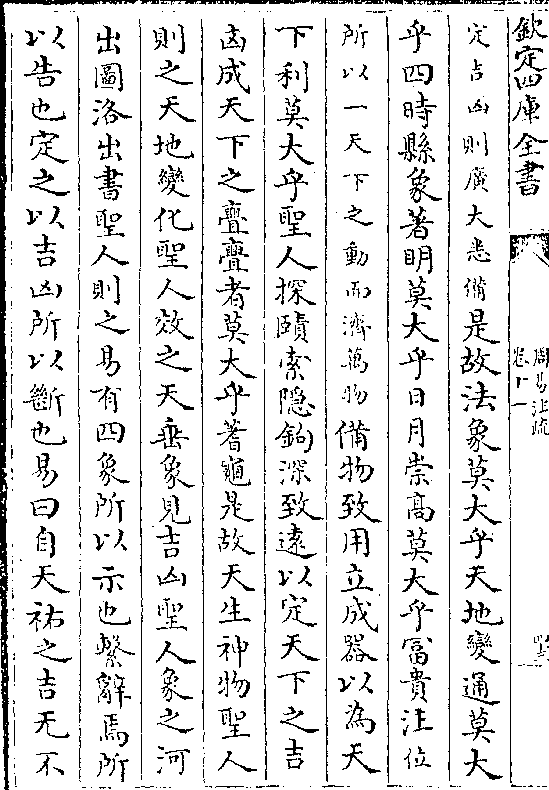 欽定四庫全書
周易注疏
卷十一
定吉凶則廣大悉備是故法象莫大乎天地變通莫大
乎四時縣象著明莫大乎日月崇高莫大乎富貴注位
所以一天下之動而濟萬物備物致用立成器以為天
下利莫大乎聖人探賾索隐鉤深致逺以定天下之吉
凶成天下之亹亹者莫大乎蓍龜是故天生神物聖人
則之天地變化聖人效之天垂象見吉凶聖人象之河
出圖洛出書聖人則之易有四象所以示也繫辭焉所
以告也定之以吉凶所以斷也易曰自天祐之吉无不